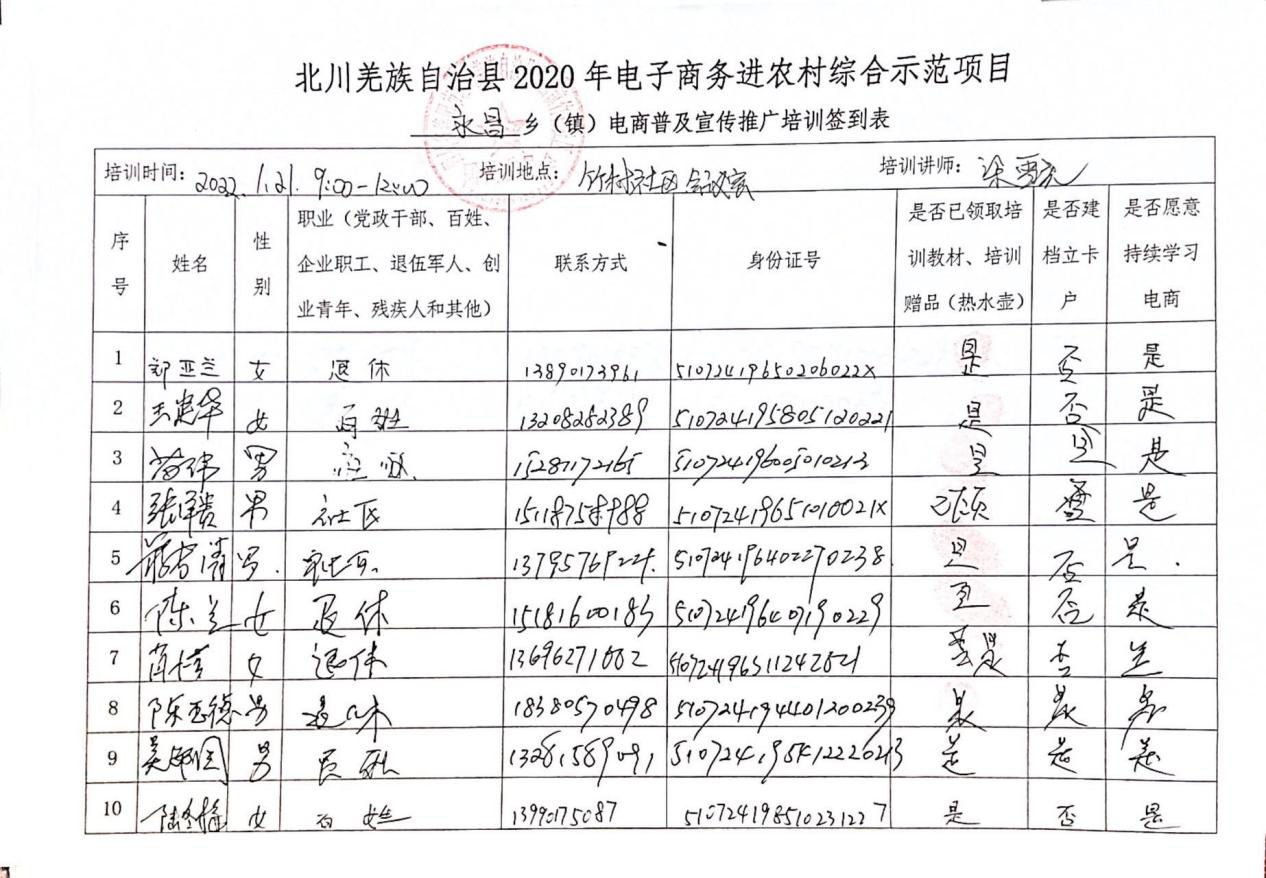 北川羌族自治县2020年电子商务进农村综合示范项目
永昌 乡（镇）电商普及宣传推广培训签到表
培训时间：2022.1.21. 9:00-12:00 培训地点：竹村社区会议室 培训讲师：
序号 姓名 性别 职业（党政干部、百姓、企业职工、退伍军人、创业青年、残疾人和其他） 联系方式 身份证号 是否已领取培训教材、培训赠品（热水壶） 是否建档立卡户 是否愿意持续学习电商
1 郑亚兰 女 退休 13890173961 51072419650206022X 是 否 是
2 王建华 女 百姓 13208282389 510724195805120221 是 否 是
3 男 15281172165 是 是 是
4 男 社区 51072419651010021X 已领 是
5 男. 510724196402270238. 是 否 是.
6 陈兰 女 退休 15181600183 510724196407190229 是 否 是
7 女 退休 否 是
8 陈玉德 男 退休 18380570498 510724194401200239 是 是 是
9 男 百姓 13281589091 510724195412220213 是 是 是
10 女 百姓 13990175087 510724198510231227 是 否 是